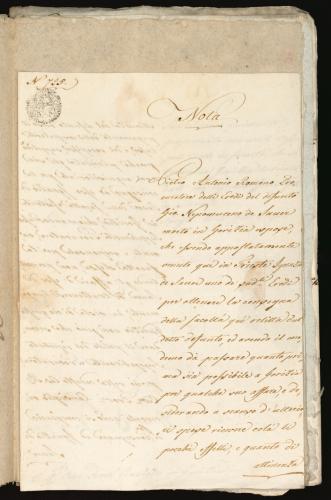 N. 755.
Nota
Pietro Antonio Romano Pro
curatore delli Eredi del defunto
Gio. Nepomuceno de
morto in Gorizia espose,
che essendo appostatamente
venuto quì in Trieste
de uno de sud.ti Eredi
per ottenere la consegna
della facoltà quì relitta dal
detto defunto ed avendo il me
desimo di passare quanto pri
ma sia possibile a Gorizia
per qualche suo affare, e de
siderando a scanso d'ulterio
ri spese ricevere colà le
pocche effetti, e quanto di